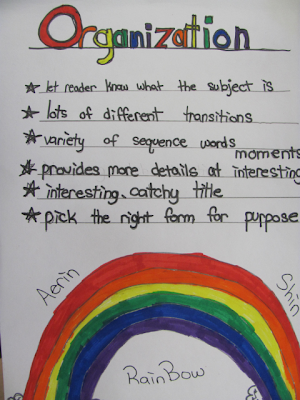 Organization
let reader know what the subject is
lots of different transitions
variety of sequence words
moments
provides more details at interesting
interesting, catchy title
pick the right form for purpose
Aerin
Shin
RainBow